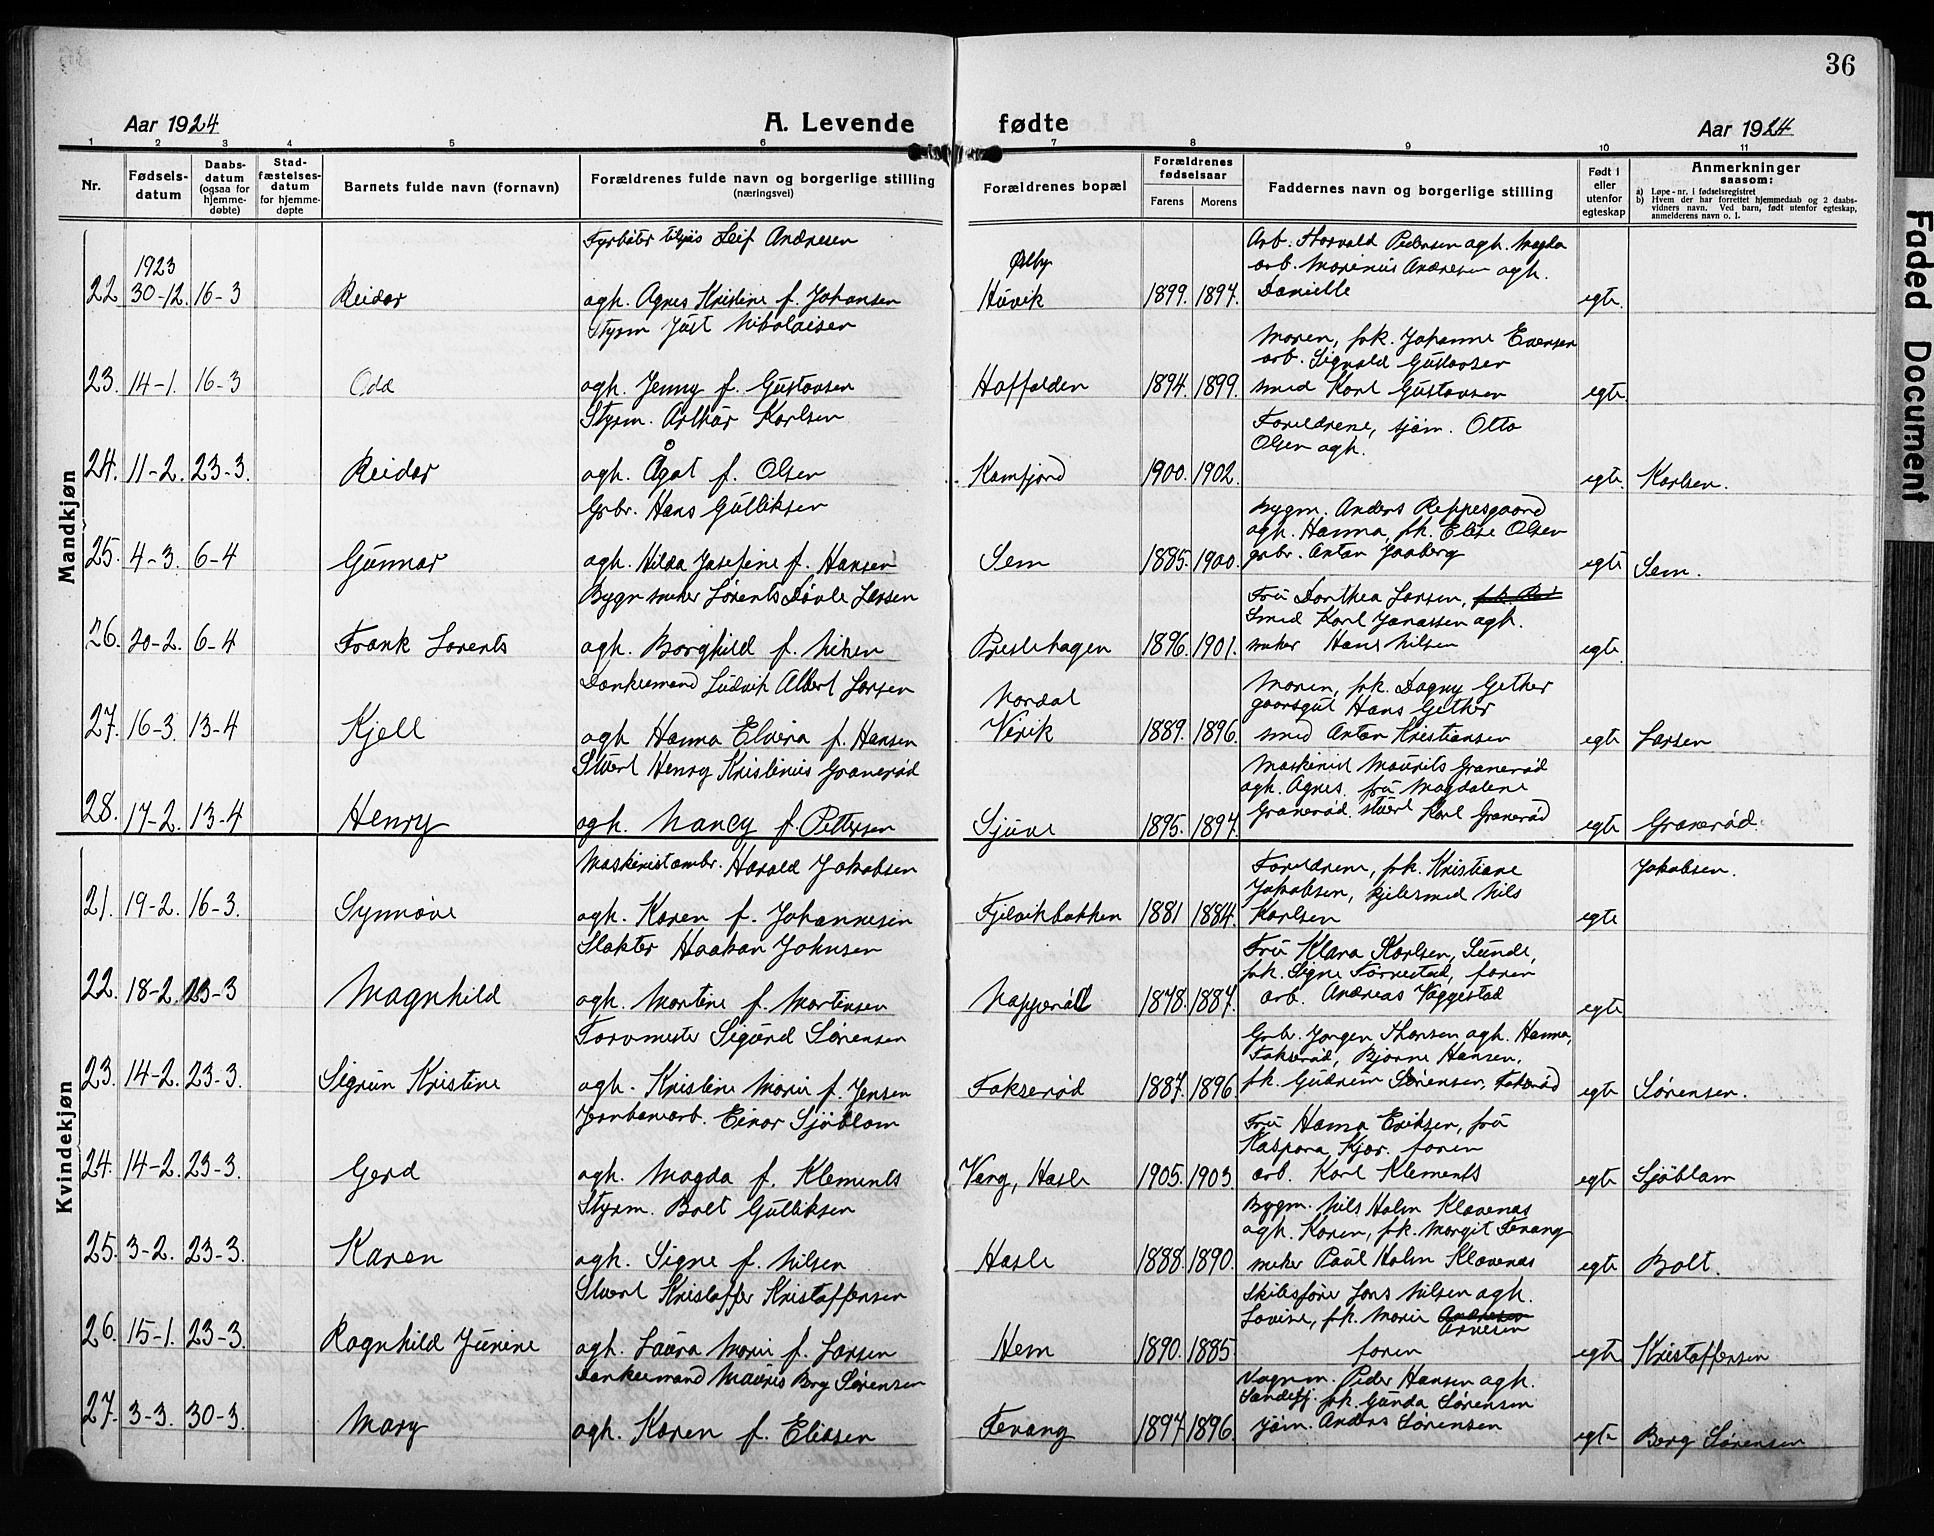 36
Aar 1924
A. Levende fødte
Aar 1924
1 2 3 4 5 6 7 8 9 10 11
Nr.
Fødsels-
datum
Daabs-
datum
(ogsaa for
hjemme-
døbte)
Stad-
fæstelses-
datum
for hjemme-
døpte
Barnets fulde navn (fornavn)
Forældrenes fulde navn og borgerlige stilling
(næringsvei)
Forældrenes bopæl
Forældrenes
fødselsaar
Farens Morens
Faddernes navn og borgerlige stilling
Født i
eller
utenfor
egteskap
Anmerkninger
saasom:
a) Løpe-nr. i fødselsregistret
b) Hvem der har forrettet hjemmedaab og 2 daabs-
vidners navn. Ved barn, født utenfor egteskap,
anmelderens navn o. l.
Mandkjøn
Fyrbøter Leif Andresen
Arb. Thorvald Pedersen agh. Magda
1923 Ørby arb. Marinius Andresen agh.
22 30-12. 16-3 Reidar agh. Agnes Kristine f. Johansen Huvik 1899. 1897. Danielle egte.
Styrm Just Nikolaisen
Moren, frk. Johanne Evensen
arb. Sigvald Gustavsen
23. 14-1. 16-3 Odd agh. Jenny f. Gustavsen Haffalden 1894. 1899. smed Karl Gustavsen egte.
Styrm. Arthur Karlsen
Foreldrene, sjøm. Otto
Olsen agh.
24. 11-2. 23-3. Reidar agh. Ågot f. Olsen Kamfjord 1900. 1902. egte. Karlsen.
Grbr. Hans Gulliksen
Bygm. Anders Reppesgaard
agh. Hanna, frk. Elise Olsen
25. 4-3. 6-4 Gunnar agh. Hilda Josefine f. Hansen Sem 1885. 1900. grbr. Anton Jaaberg egte Sem.
Bygn. sneker Lorents Larsen
Fru Dorthea Larsen,
Smed Karl Jonassen agh.
26. 20-2. 6-4 Frank Lorents agh. Borghild f. Nilsen Preslehagen 1896. 1901. sneker Hans Nilsen egte
Donkeemand Ludvik Albert Larsen
Moren, frk. Dagny Gether
Nordal gaarsgut Hans Gether
27. 16-3. 13-4 Kjell agh. Hanna Elvira f. Hansen Virik 1889. 1896. smed Anton Kristiansen egte Larsen
Stuert Henry Kristinius Granerød
Maskinist Maurits Granerød
agh. Agnes, fru Magdalene
28. 17-2. 13-4 Henry agh. Nancy f. Pettersen Sjuve 1895. 1897. Granerød, stuert Karl Granerød egte Granerød.
Kvindekjøn
Maskinistambr. Harald Jakobsen
Foreldrene, frk. Kristiane Jakobsen.
Jakobsen, kjelesmed Nils
21. 19-2. 16-3. Synnøve agh. Karen f. Johannesen Fjelvikbakken 1881 1884. Karlsen egte
Slakter Haakon Johnsen
Fru Klara Karlsen, Sunde,
frk. Signe Fornestad, faren
22. 18-2. 23-3 Magnhild agh. Martine f. Mortensen Napperød 1878. 1887. arb. Andreas Vaggestad egte
Farvmester Sigurd Sørensen
Grb. Jørgen Thorsen agh. Hanna,
Fokserød, Bjarne Hansen,
23. 14-2. 23-3. Sigrun Kristine agh. Kristine Marie f. Jensen Fokserød 1887. 1896. frk. Gudrun Sørensen, Fokserød egte Sørensen.
Jernbanearb. Einar Sjøblom
Fru Hanna Eriksen, fru
Kaspara Kjær. faren
24. 14-2. 23-3. Gerd agh. Magda f. Klements Varg, Hasle 1905. 1903. arb. Karl Klements egte Sjøblom
Styrm. Bolt Gulliksen
Bygm. Nils Holm Klavenas
agh. Karen, frk. Margit Fevang
25. 3-2. 23-3. Karen agh. Signe f. Nilsen Hasle 1888. 1890. sneker Paul Holm Klavenas egte Bolt.
Stuert Kristoffer Kristoffersen
Skibsfører Lars Nilsen agh.
Lovise, frk. Marie Andresen
Arnesen
26. 15-1. 23-3. Ragnhild Junine agh. Laura Marie f. Larsen Hem 1890. 1885. faren egte Kristoffersen
Donkeemand Mauris Berg Sørensen
Vognm. Peder Hansen agh.
Sandefj. frk. Gunda Sørensen
27. 3-3. 30-3. Mary agh. Karen f. Eliasen Fevang 1897. 1896. sjøm. Anders Sørensen egte Berg Sørensen
Faded Document